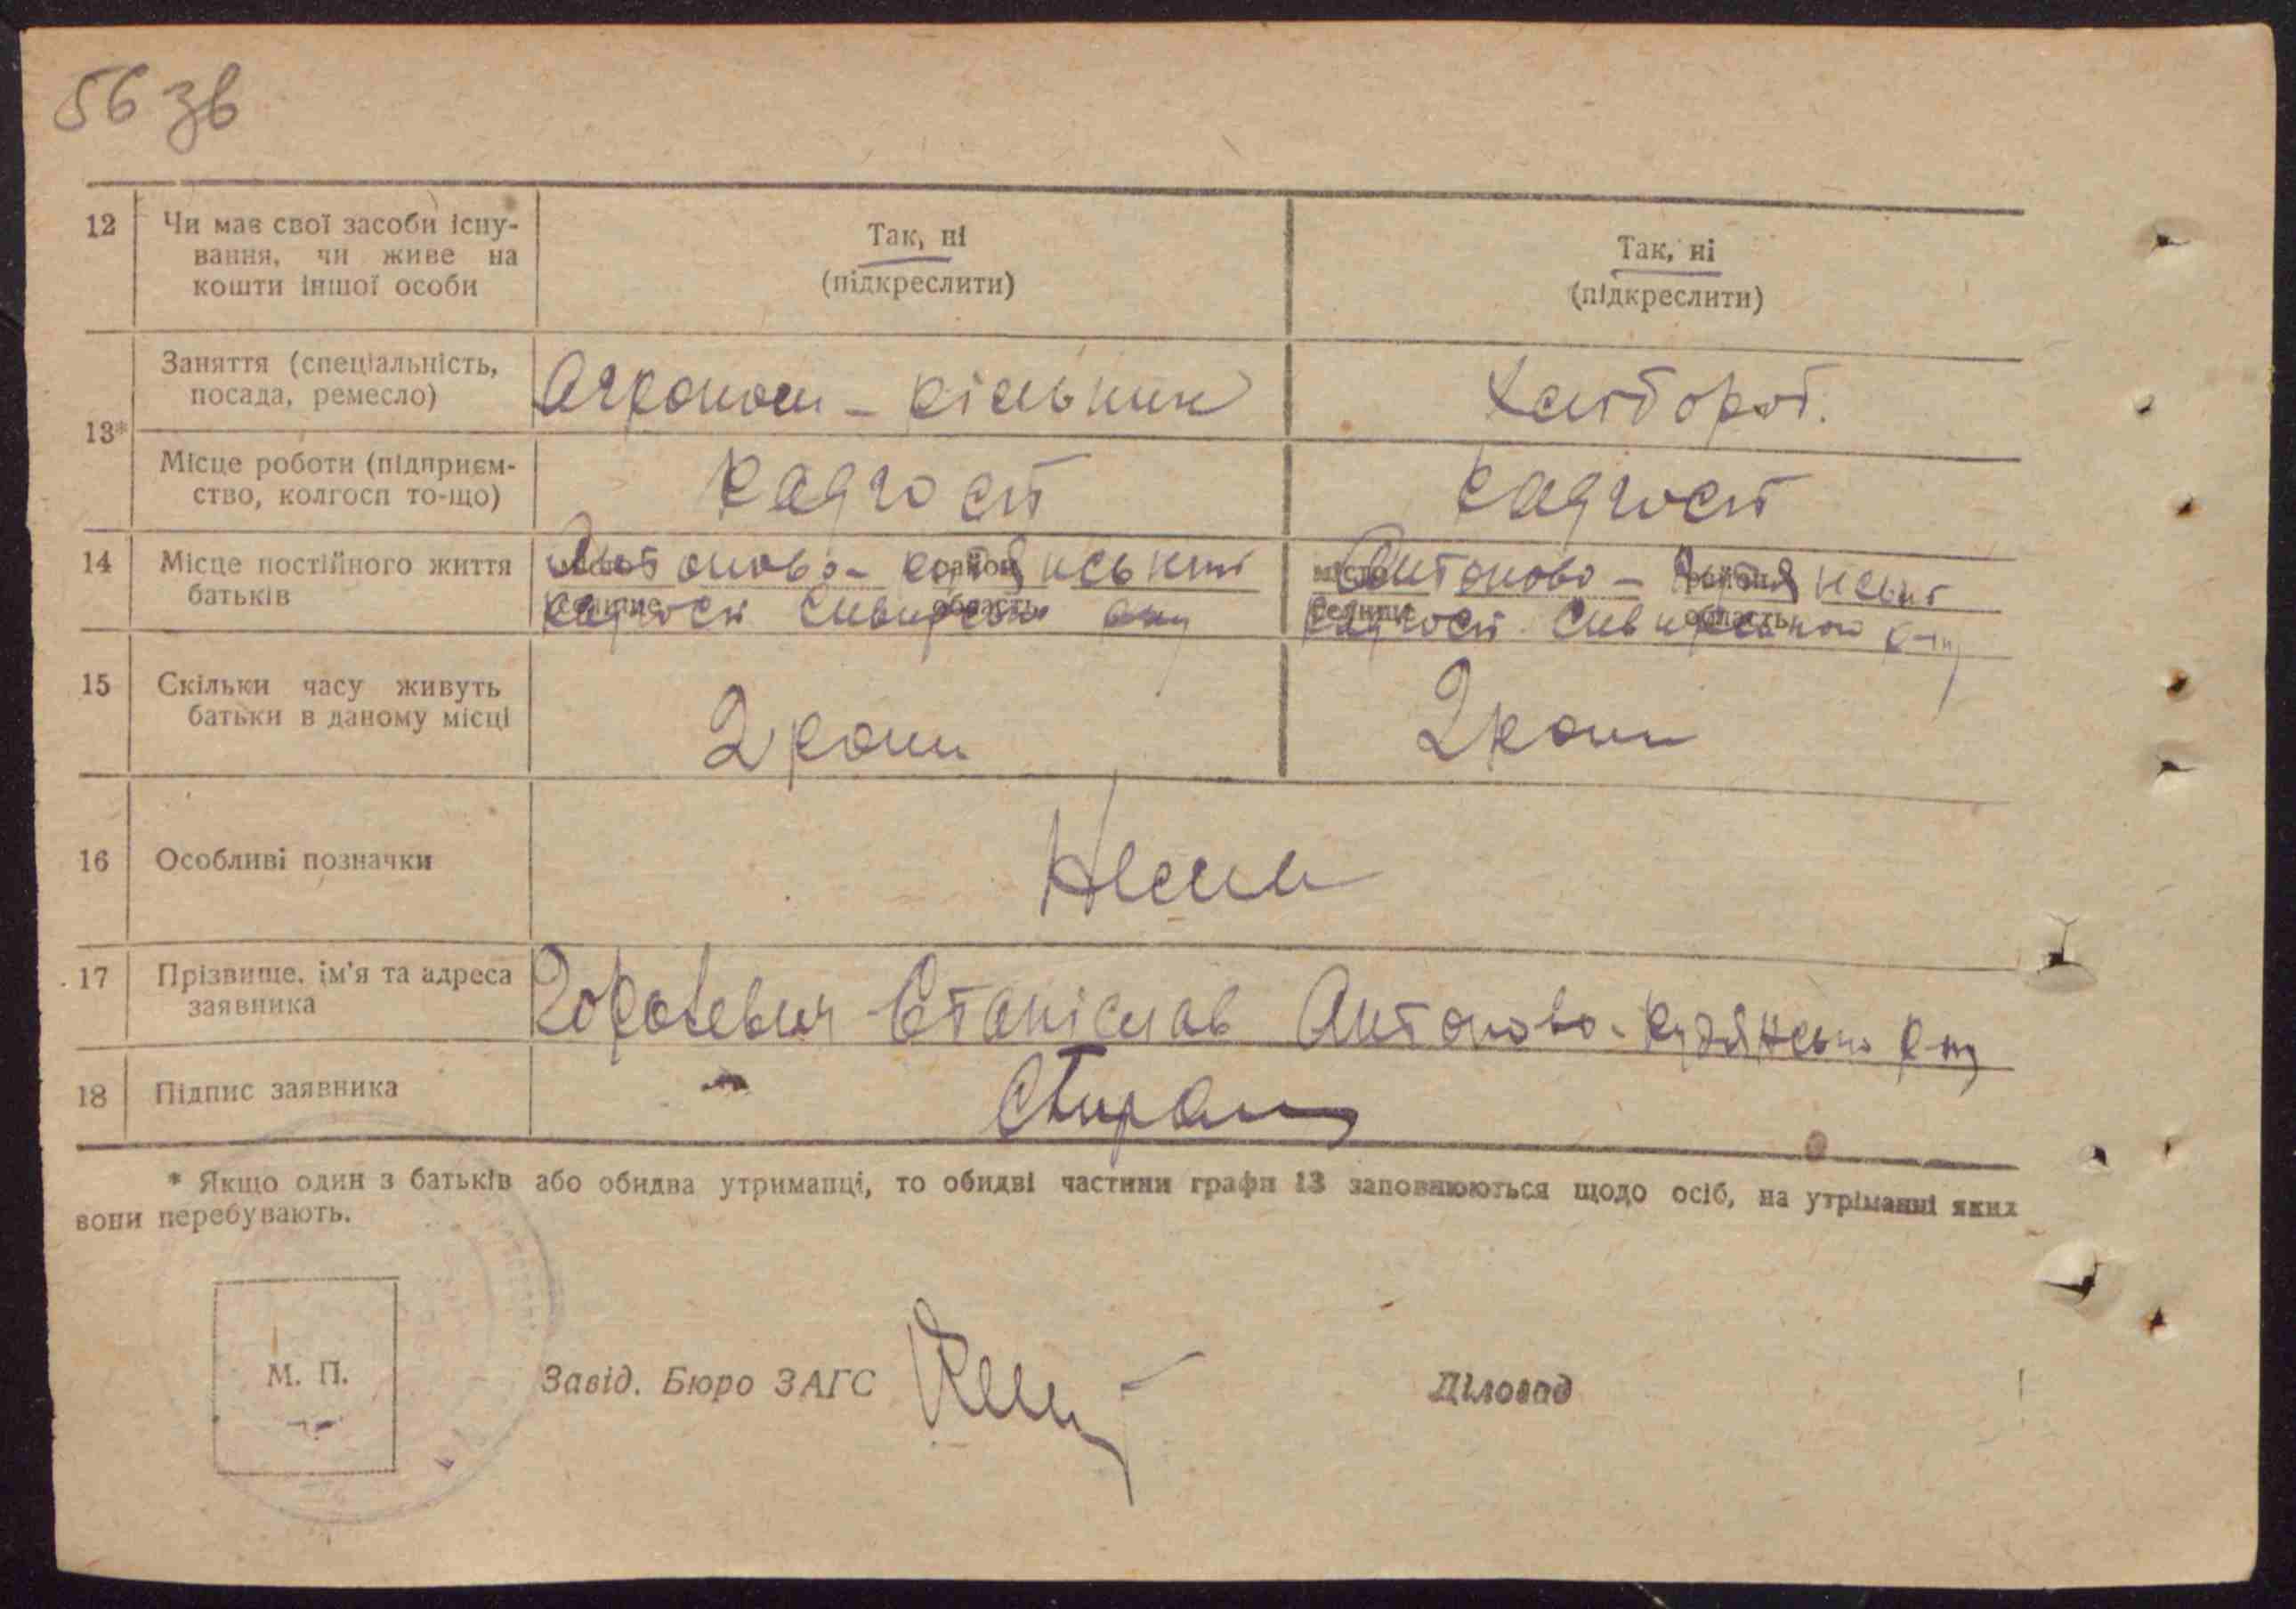 56 зв
12 Чи має свої засоби існу-
вання, чи живе на
кошти іншої особи
Так, ні
(підкреслити)
Так, ні
(підкреслити)
13*
Заняття (спеціальність,
посада, ремесло)
Агроном - рільник
Хлібороб.
Місце роботи (підприєм-
ство, колгосп то-що)
Радгосп
Радгосп
14 Місце постійного життя
батьків
місто район
селище область
Антоново-
радгосп
місто район
селище область
Антоново -
радгосп
15 Скільки часу живуть
батьки в даному місці
2 роки
2 роки
16 Особливі позначки
Немає
17 Прізвище, ім'я та адреса
заявника
Станіслав Антоново-
18 Підпис заявника
* Якщо один з батьків або обидва утриманці, то обидві частини графи 13 заповнюються щодо осіб, на утріманні яких
вони перебувають.
М. П.
Завід. Бюро ЗАГС
Діловод